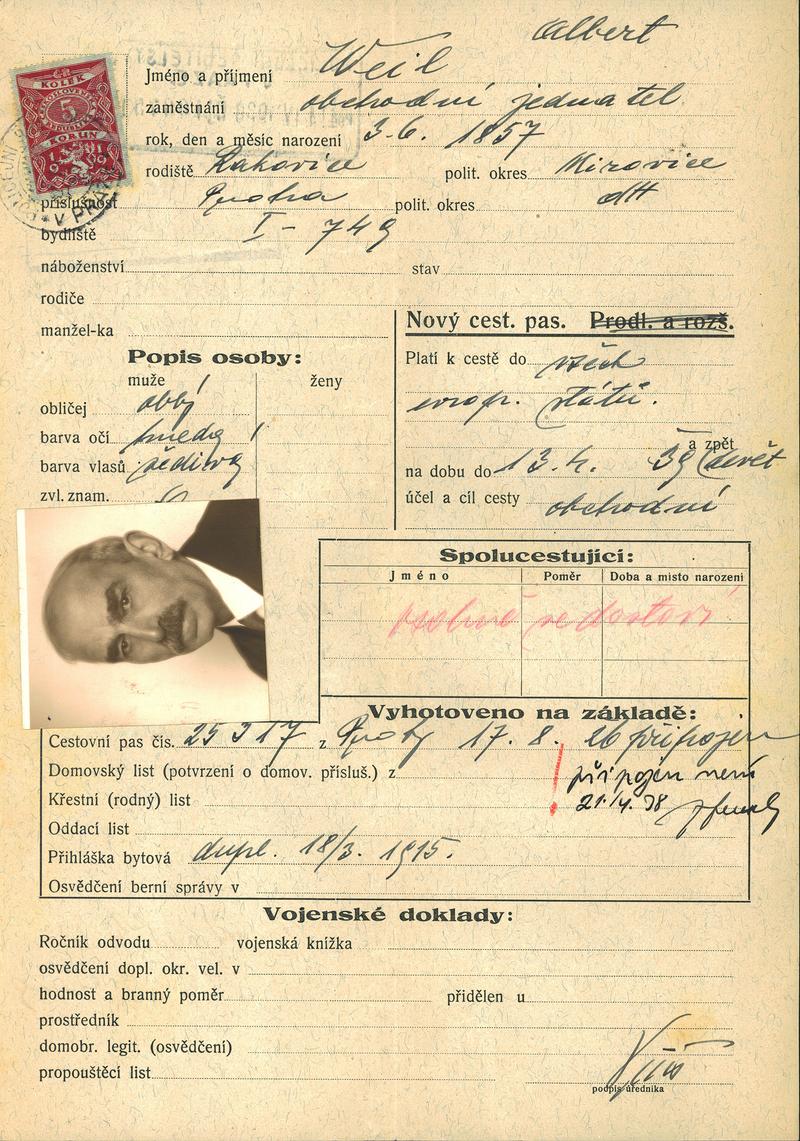 Albert
Jméno a příjmení Weil
zaměstnání obchodní jednatel
rok, den a měsíc narození 3. 6. 1857
rodiště Rakovice polit. okres Mirovice
příslušnost Praha polit. okres dtt
bydliště I - 749
náboženství stav
rodiče
manžel-ka
KOLEK
5
KORUN
1919
V PRAZE
Nový cest. pas. Prodl. a rozš.
Platí k cestě do všech
evrop. států.
a zpět
na dobu do 13. 4. 39 devět
účel a cíl cesty obchodní
Popis osoby:
muže ženy
obličej obl.
barva očí hnědá
barva vlasů šedivá
zvl. znam.
Spolucestující:
Jméno Poměr Doba a místo narození
Vyhotoveno na základě:
Cestovní pas čís. 25317 z Prahy 17. 8. 26 připojen
Domovský list (potvrzení o domov. přísluš.) z ! připojen není
Křestní (rodný) list 21./4. 38
Oddací list
Přihláška bytová dupl. 18/3. 1915.
Osvědčení berní správy v
Vojenské doklady:
Ročník odvodu vojenská knížka
osvědčení dopl. okr. vel. v
hodnost a branný poměr přidělen u
prostředník
domobr. legit. (osvědčení)
propouštěcí list
podpis úředníka